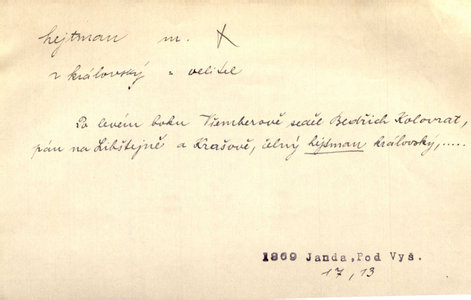 hejtman m. X
z královský = velitel
Po levém boku Všemberově seděl Bedřich Kolovrat,
pán na Libštejně a Krašově, čelný hejtman královský,.....
1869 Janda, Pod Vyš.
17, 13